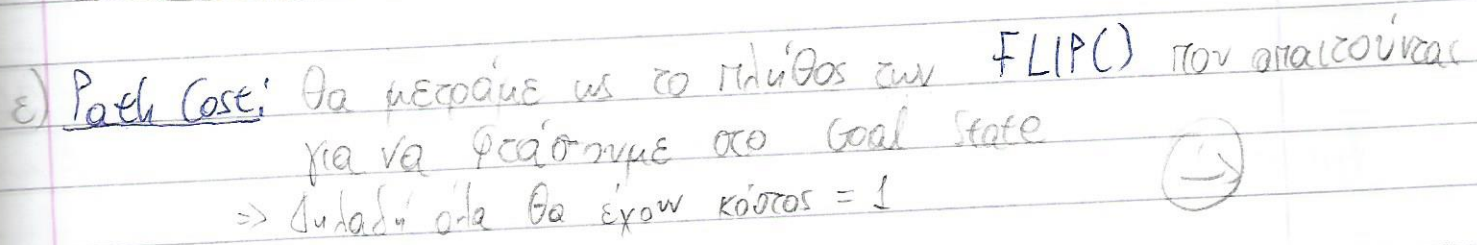 ε) Path Cost: Θα μετράμε ως το πλήθος των FLIP() που απαιτούνται
για να φτάσουμε στο Goal State
=> Δηλαδή όλα θα έχουν κόστος = 1